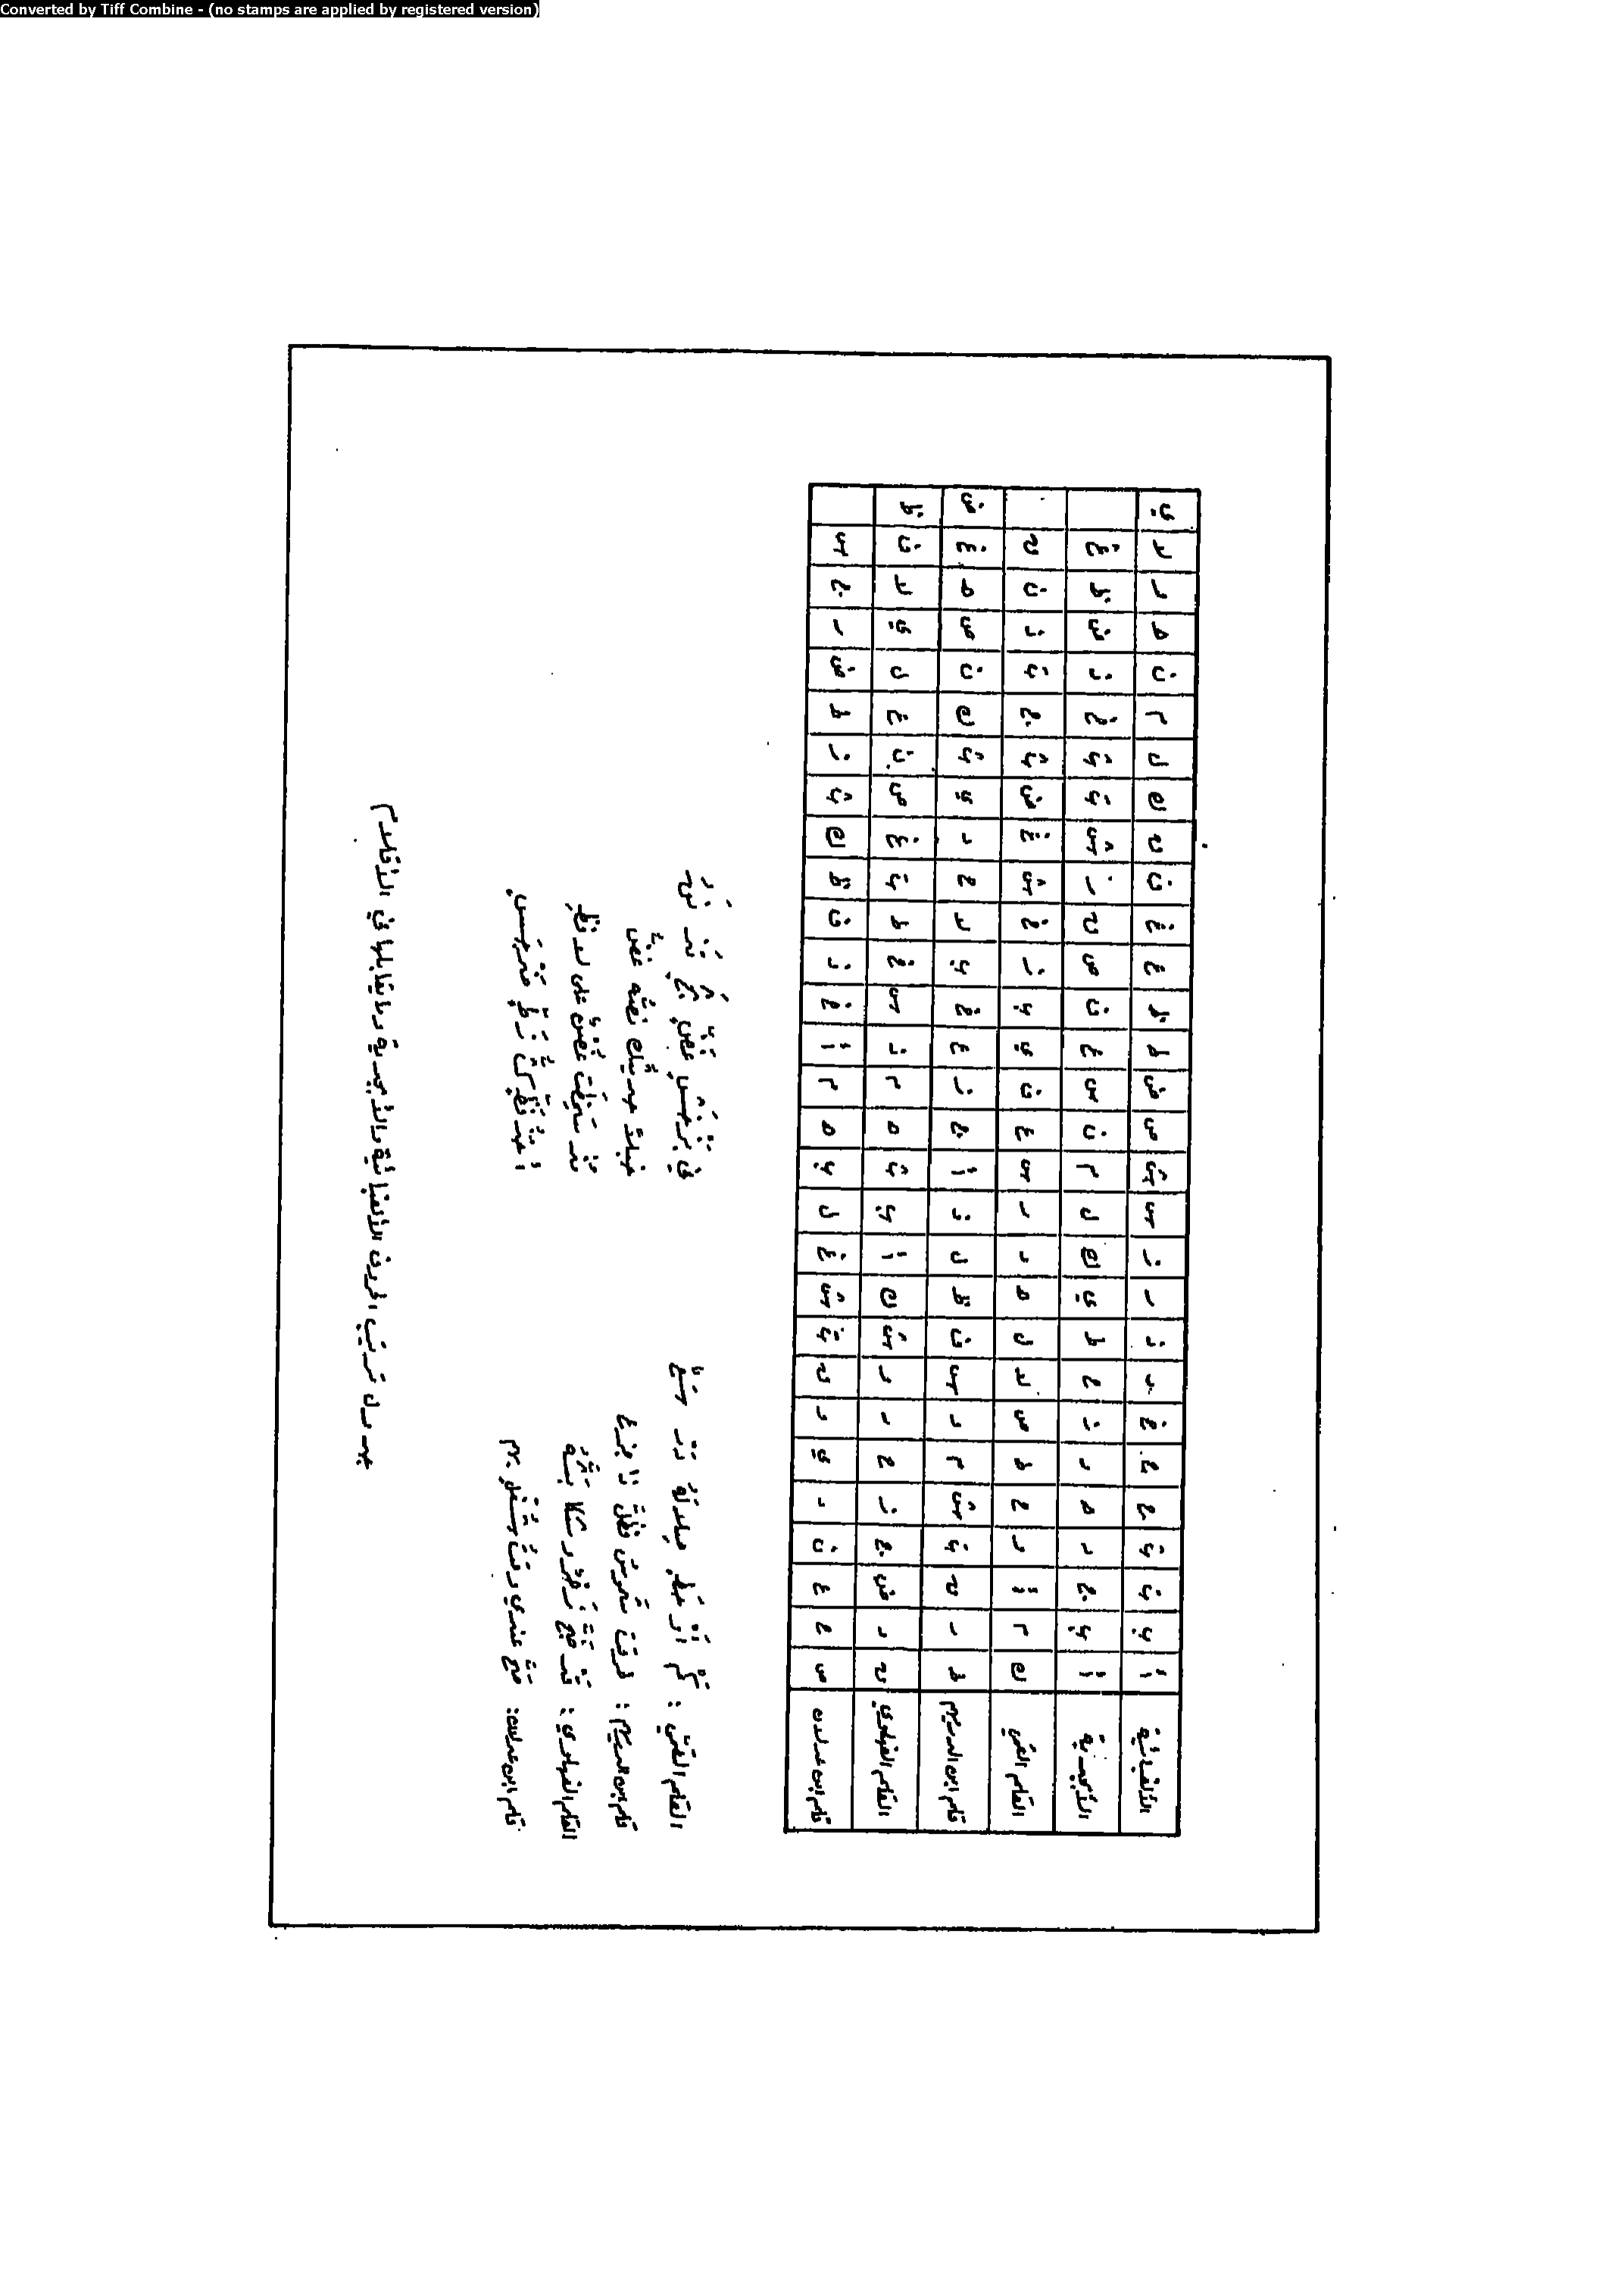 الألفبائية أ ب ت ث ج ح خ د ذ ر ز س ش ص ض ط ظ ع غ ف ق ك ل م ن ه و لا ي
الأبجدية أ ب ج د ه و ز ح ط ي ك ل م ن س ع ف ص ق ر ش ت ث خ ذ ض ظ غ
القلم القمي ك م أ و ح ط ص لا ل ه د ر س ع ف ي ب ز خ ش غ ض ث ج ت ذ ن ق
قلم ابن الدريهم ط ر ق ت ش م و س ف ظ ل ذ أ ج ز ع خ ب لا ح د ي ث ك ن ص ه غ ض
القلم الفهلوي ق د ض ج ز ح ر و ش ك أ ب ث ه م ذ س خ ط ت غ ص ن ع ل ي لا ف ظ
قلم ابن عدلان ص ح ع ن د ي و ق ت ش غ ل ب ه م أ خ ذ ف ظ ك ث ز ط ض ر ج س
القلم القمي : كم أو حط صلا له در سع في بز خش غض ثج تذ نق
قلم ابن الدريهم : طرقت شموس فظل ذا جزع خبلا حديث كنصه غض
القلم الفهلوي : قد ضج زحر وشكا بثه مذ سخطت غصن على لافظ
قلم ابن عدلان : صح عندي وقت شغل بهم أخذ فظ كث زط ضر جس
جدول ترتيب الحروف الألفبائية والأبجدية وما يقابلها في الأقلام
Converted by Tiff Combine - (no stamps are applied by registered version)